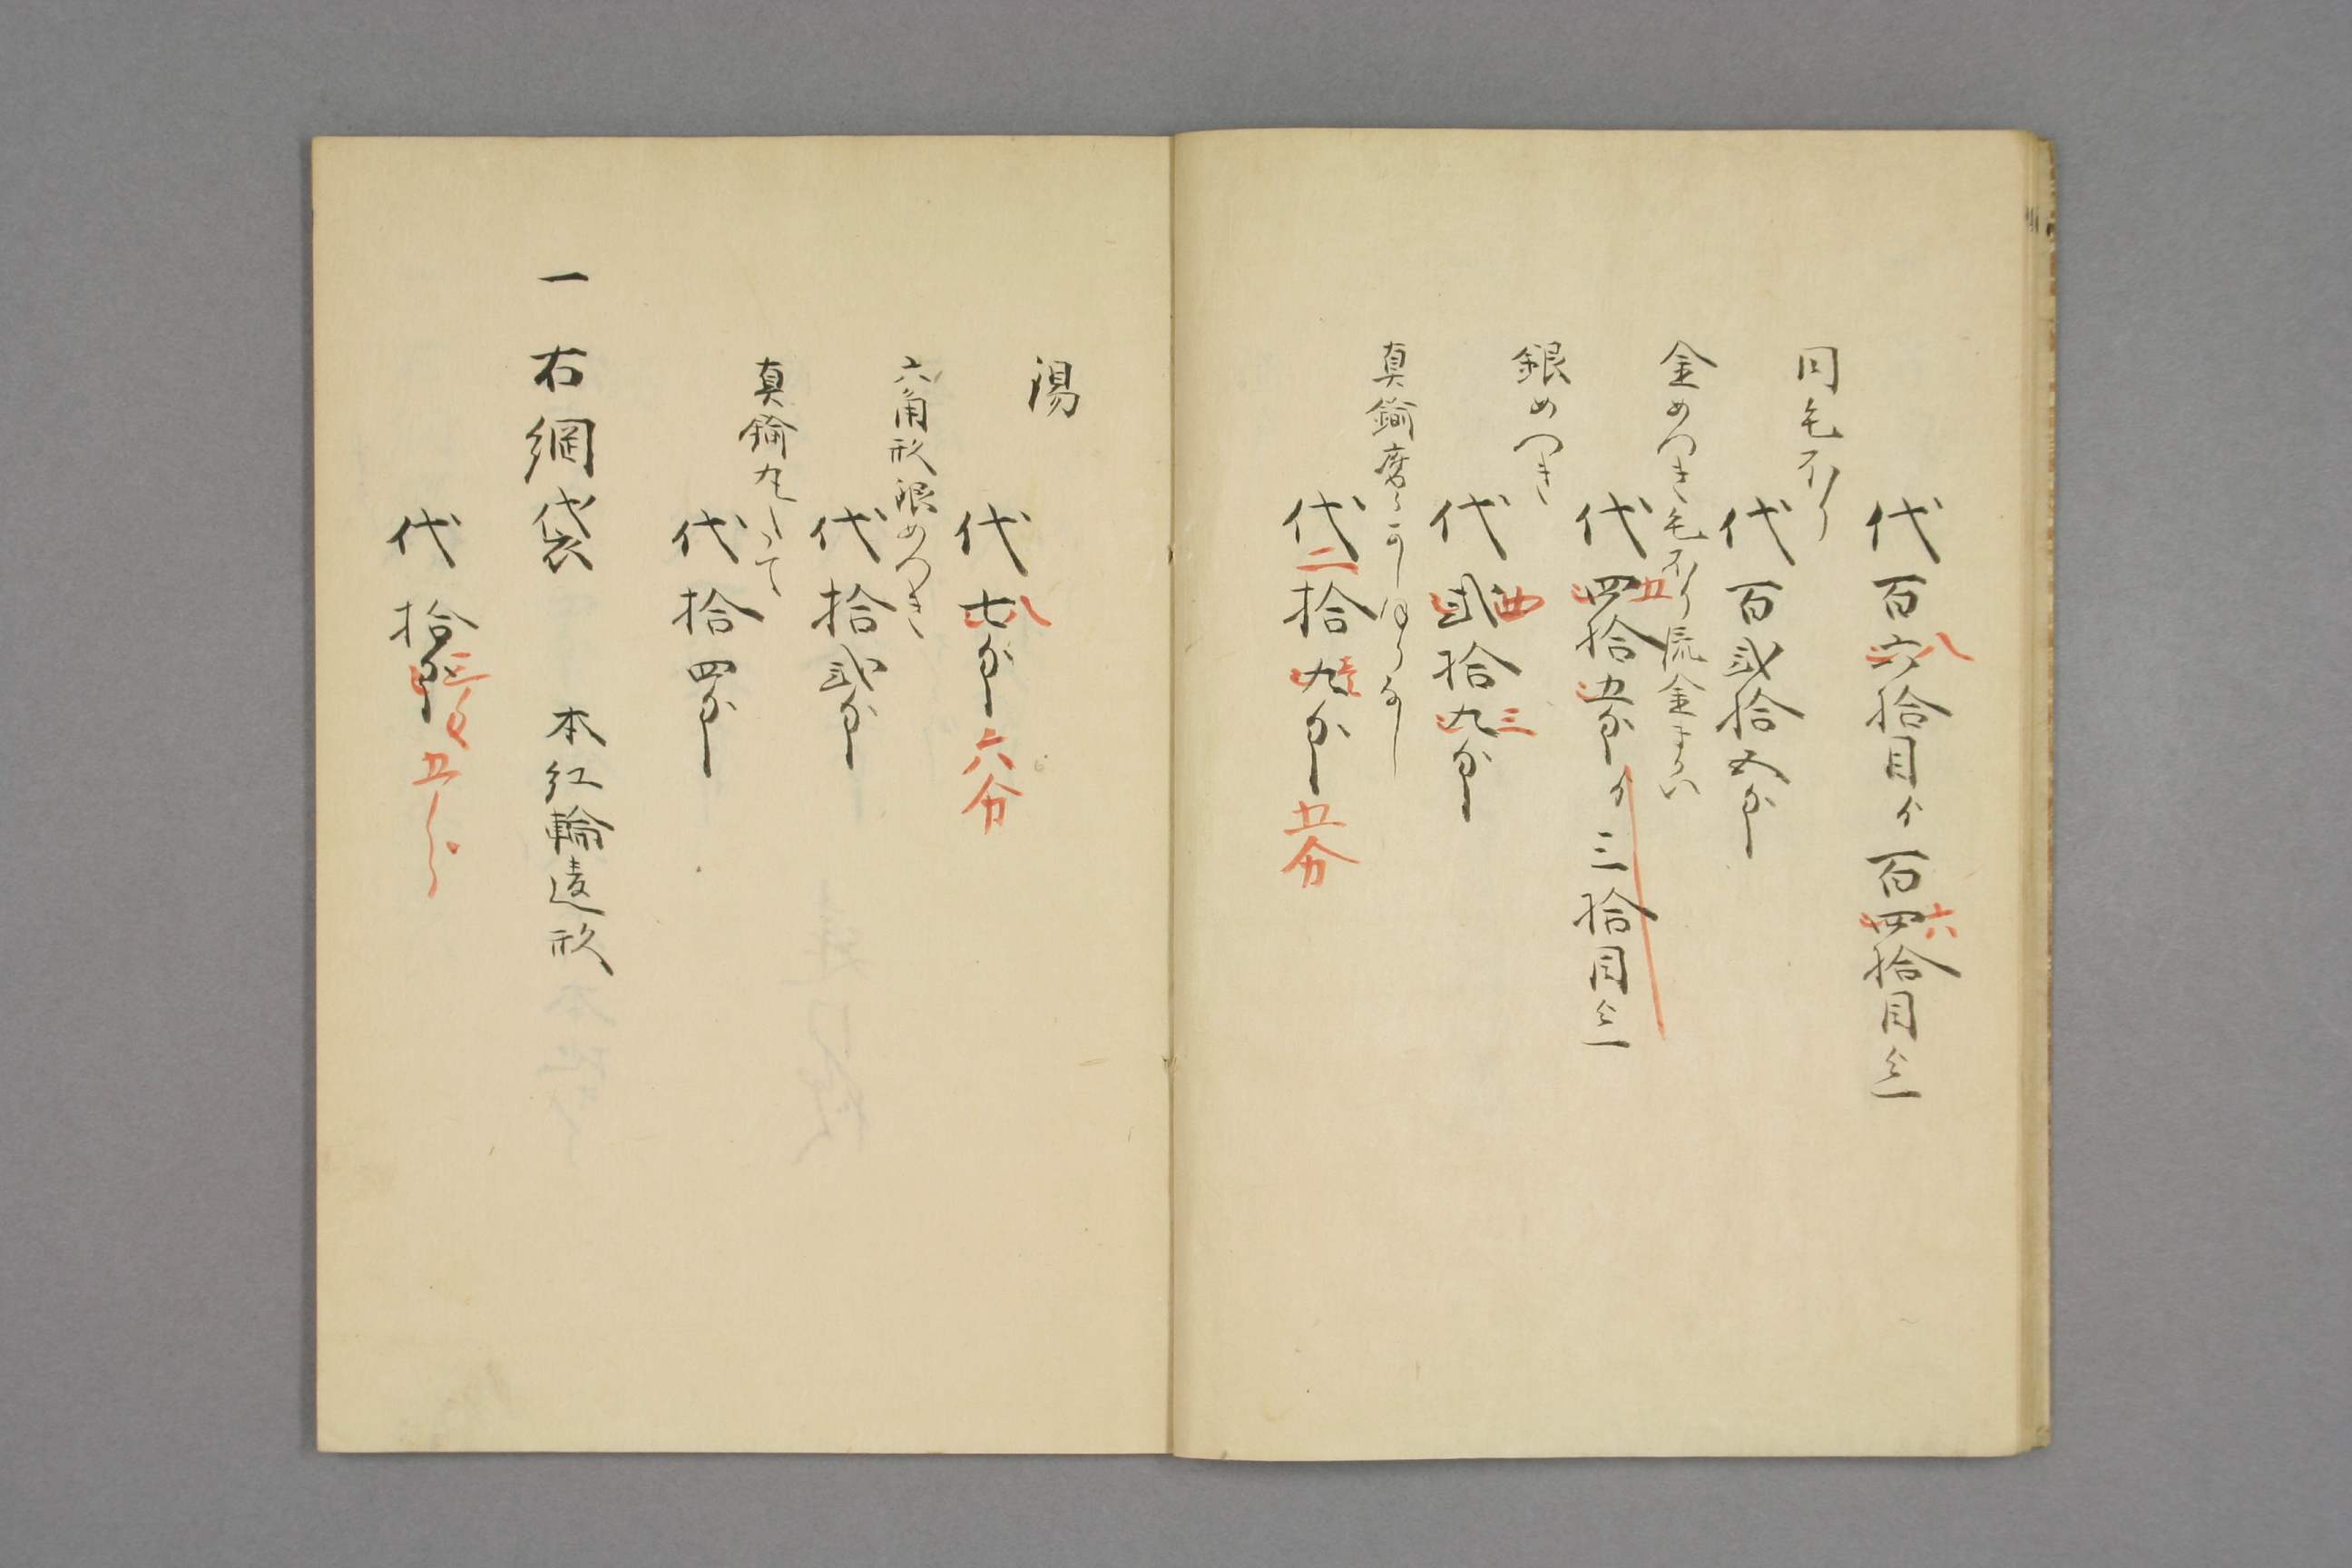 代百六八拾目ゟ百四六拾目迄
同毛ほり
代百弐拾五匁
金めつき毛ほり流金まい
代四五拾五匁ゟ三拾目迄
銀めつき
代弐四拾九三匁
真鍮磨
代二拾九匁五分
湯
代七八匁六分
六角形銀めつき
代拾弐匁
真鍮
代拾四匁
一右網袋 本紅輪違形
代拾